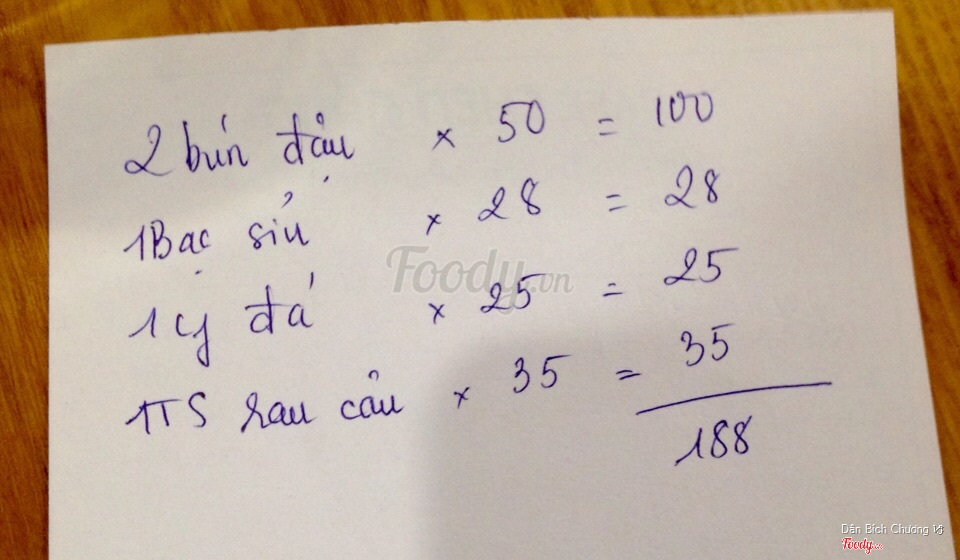 2 bún đậu × 50 = 100
1 Bạc sỉu × 28 = 28
Foody.vn
1 cf đá × 25 = 25
1 TS rau câu × 35 = 35
188
Dân Bích Chương Vj
Foody.vn